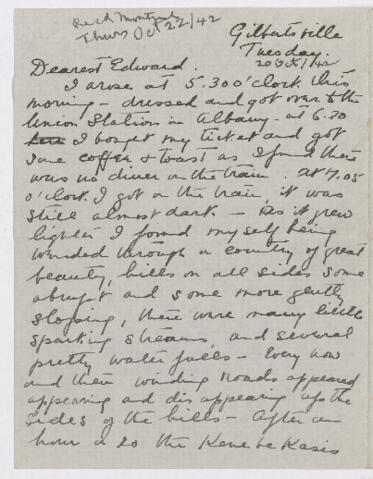 Rec'd Montreal
Thurs Oct 22/42
Gilbertsville
Tuesday.
20 Oct/42
Dearest Edward.
I arose at 5.30 o'clock this
morning - dressed and got over to the
Union Station in Albany - at 6.30
I bought my ticket and got
some coffee & toast as I found there
was no diner on the train. at 7.05
o'clock I got on the train, it was
still almost dark - as it grew
lighter I found my self being
winded through a country of great
beauty, hills on all sides some
abrupt and some more gently
sloping, there were many little
sparkling streams, and several
pretty water falls - Every now
and then winding roads appeared
appearing and disappearing up the
sides of the hills - After an
hour or so the Kene be Kasis